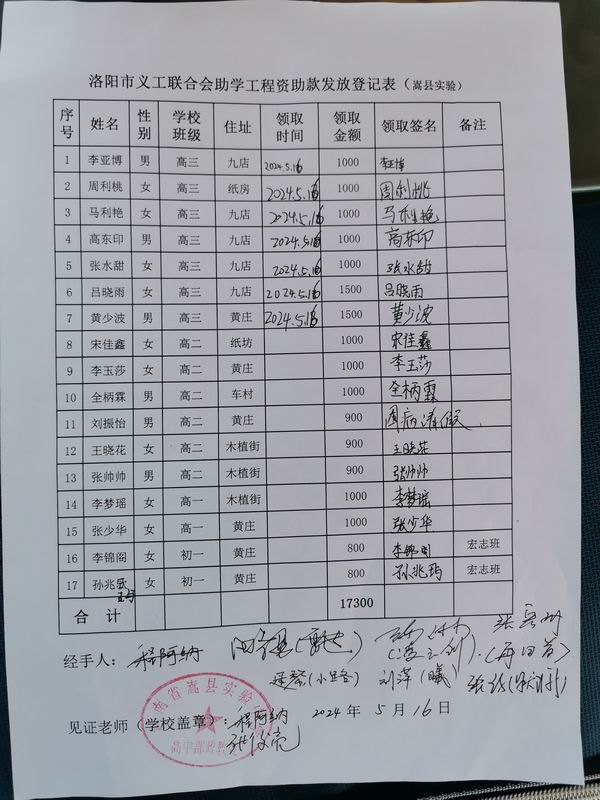 洛阳市义工联合会助学工程资助款发放登记表（嵩县实验）
序号 姓名 性别 学校班级 住址 领取时间 领取金额 领取签名 备注
1 李亚博 男 高三 九店 2024.5.16 1000 李亚博
2 周利桃 女 高三 纸房 2024.5.16 1000 周利桃
3 马利艳 女 高三 九店 2024.5.16 1000 马利艳
4 高东印 男 高三 九店 2024.5.16 1000 高东印
5 张水甜 女 高三 九店 2024.5.16 1000 张水甜
6 吕晓雨 女 高三 九店 2024.5.16 1500 吕晓雨
7 黄少波 男 高三 黄庄 2024.5.16 1500 黄少波
8 宋佳鑫 女 高二 纸坊 1000 宋佳鑫
9 李玉莎 女 高二 黄庄 1000 李玉莎
10 全柄霖 男 高二 车村 1000 全柄霖
11 刘振怡 男 高二 黄庄 900 因病请假
12 王晓花 女 高二 木植街 900 王晓花
13 张帅帅 男 高二 木植街 900 张帅帅
14 李梦瑶 女 高一 木植街 1000 李梦瑶
15 张少华 女 高一 黄庄 1000 张少华
16 李锦阁 女 初一 黄庄 800 李锦阁 宏志班
17 孙兆 女 初一 黄庄 800 孙兆玙 宏志班
合计 17300
经手人：程阿纳
刘萍
见证老师（学校盖章）：程阿纳 2024 年 5 月 16 日
省嵩县实验
高中部